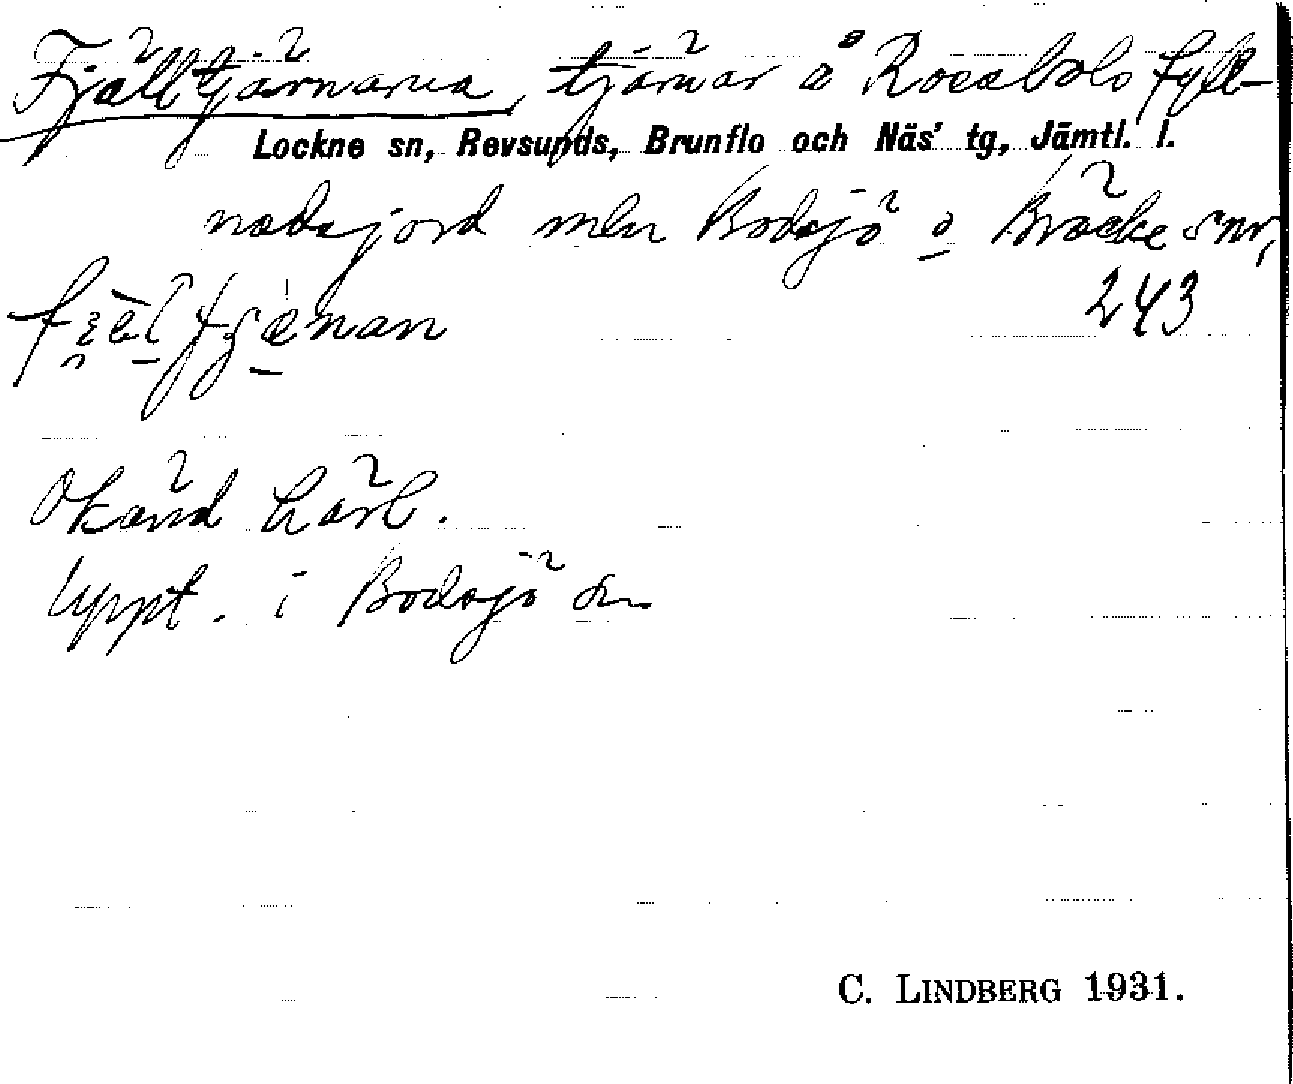 Fjälltjärnarna, tjärnar å Rosabols fyll-
Lockne sn, Revsunds, Brunflo och Näs' tg, Jämtl. l.
nadsjord mln Bodsjö o Bräcke snr,
243
Okänd härl.
Uppt. i Bodsjö sn
C. LINDBERG 1931.